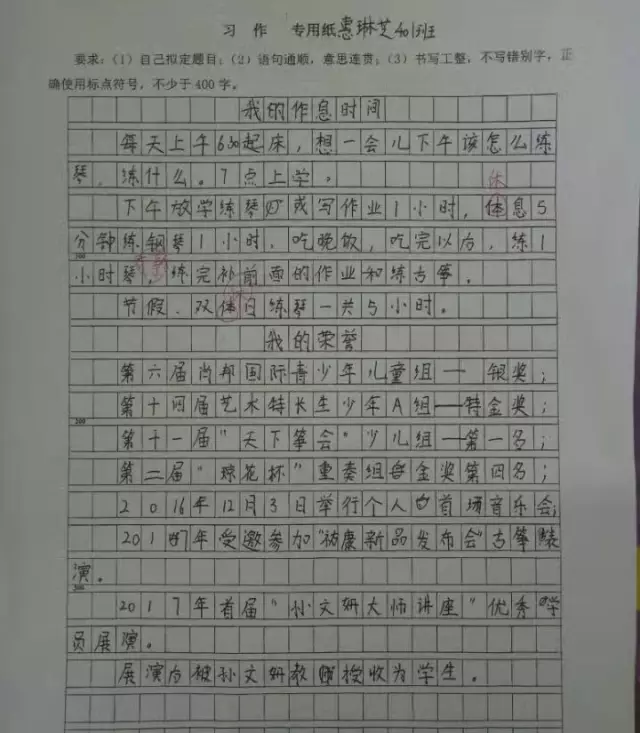 习 作 专用纸 惠琳芝 401班
要求：（1）自己拟定题目；（2）语句通顺，意思连贯；（3）书写工整，不写错别字，正
确使用标点符号，不少于400字。
我的作息时间
每天上午6:30起床，想一会儿下午该怎么练
琴，练什么。7点上学。
休
下午放学练琴或写作业1小时，体息5
分钟练钢琴1小时，吃晚饭，吃完以后，练1
小时琴，练完补前面的作业和练古筝。
节假、双休日练琴一共5小时。
我的荣誉
第六届肖邦国际青少年儿童组——银奖；
第十四届艺术特长生少年A组——特金奖；
第十一届"天下筝会"少儿组——第一名；
第二届"琼花杯"重奏组金奖第四名；
2016年12月3日举行个人首场音乐会；
2017年受邀参加"祐康新品发布会"古筝表
演。
2017年首届"孙文妍大师讲座"优秀学
员展演。
展演后被孙文妍教授收为学生。